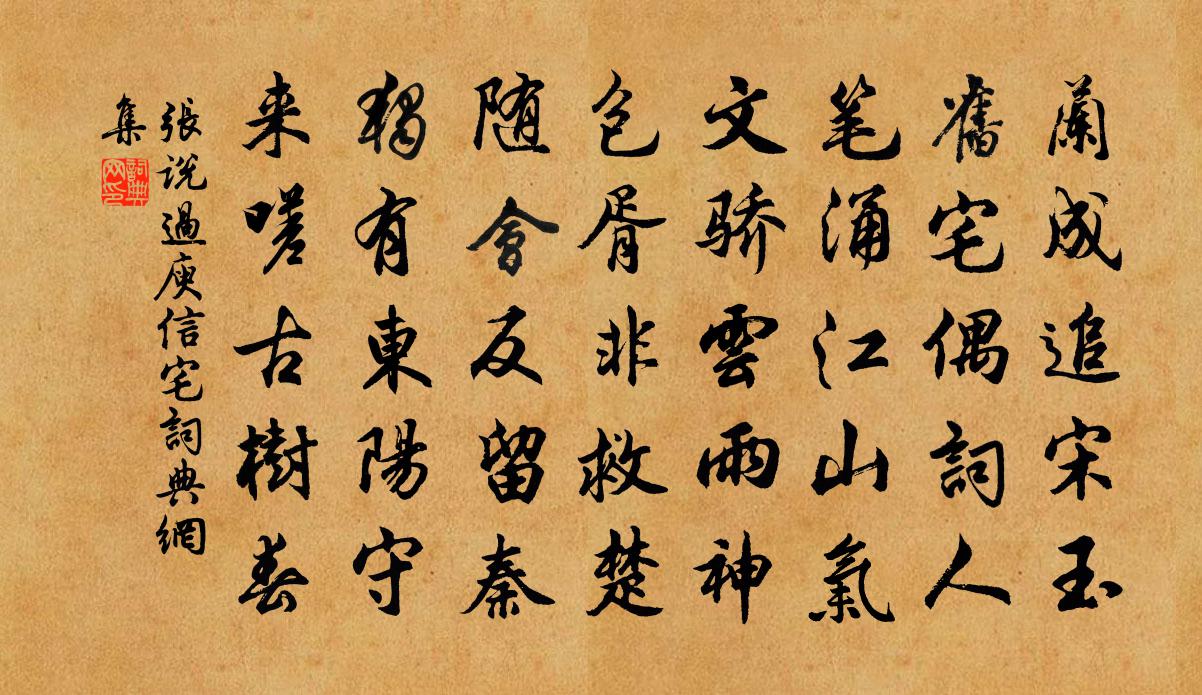 蘭成追宋玉
舊宅偶詞人
笔涌江山氣
文骄雲雨神
包胥非救楚
随會反留秦
獨有東陽守
来嗟古樹春
張说過庾信宅詞典網
集
詞典网印